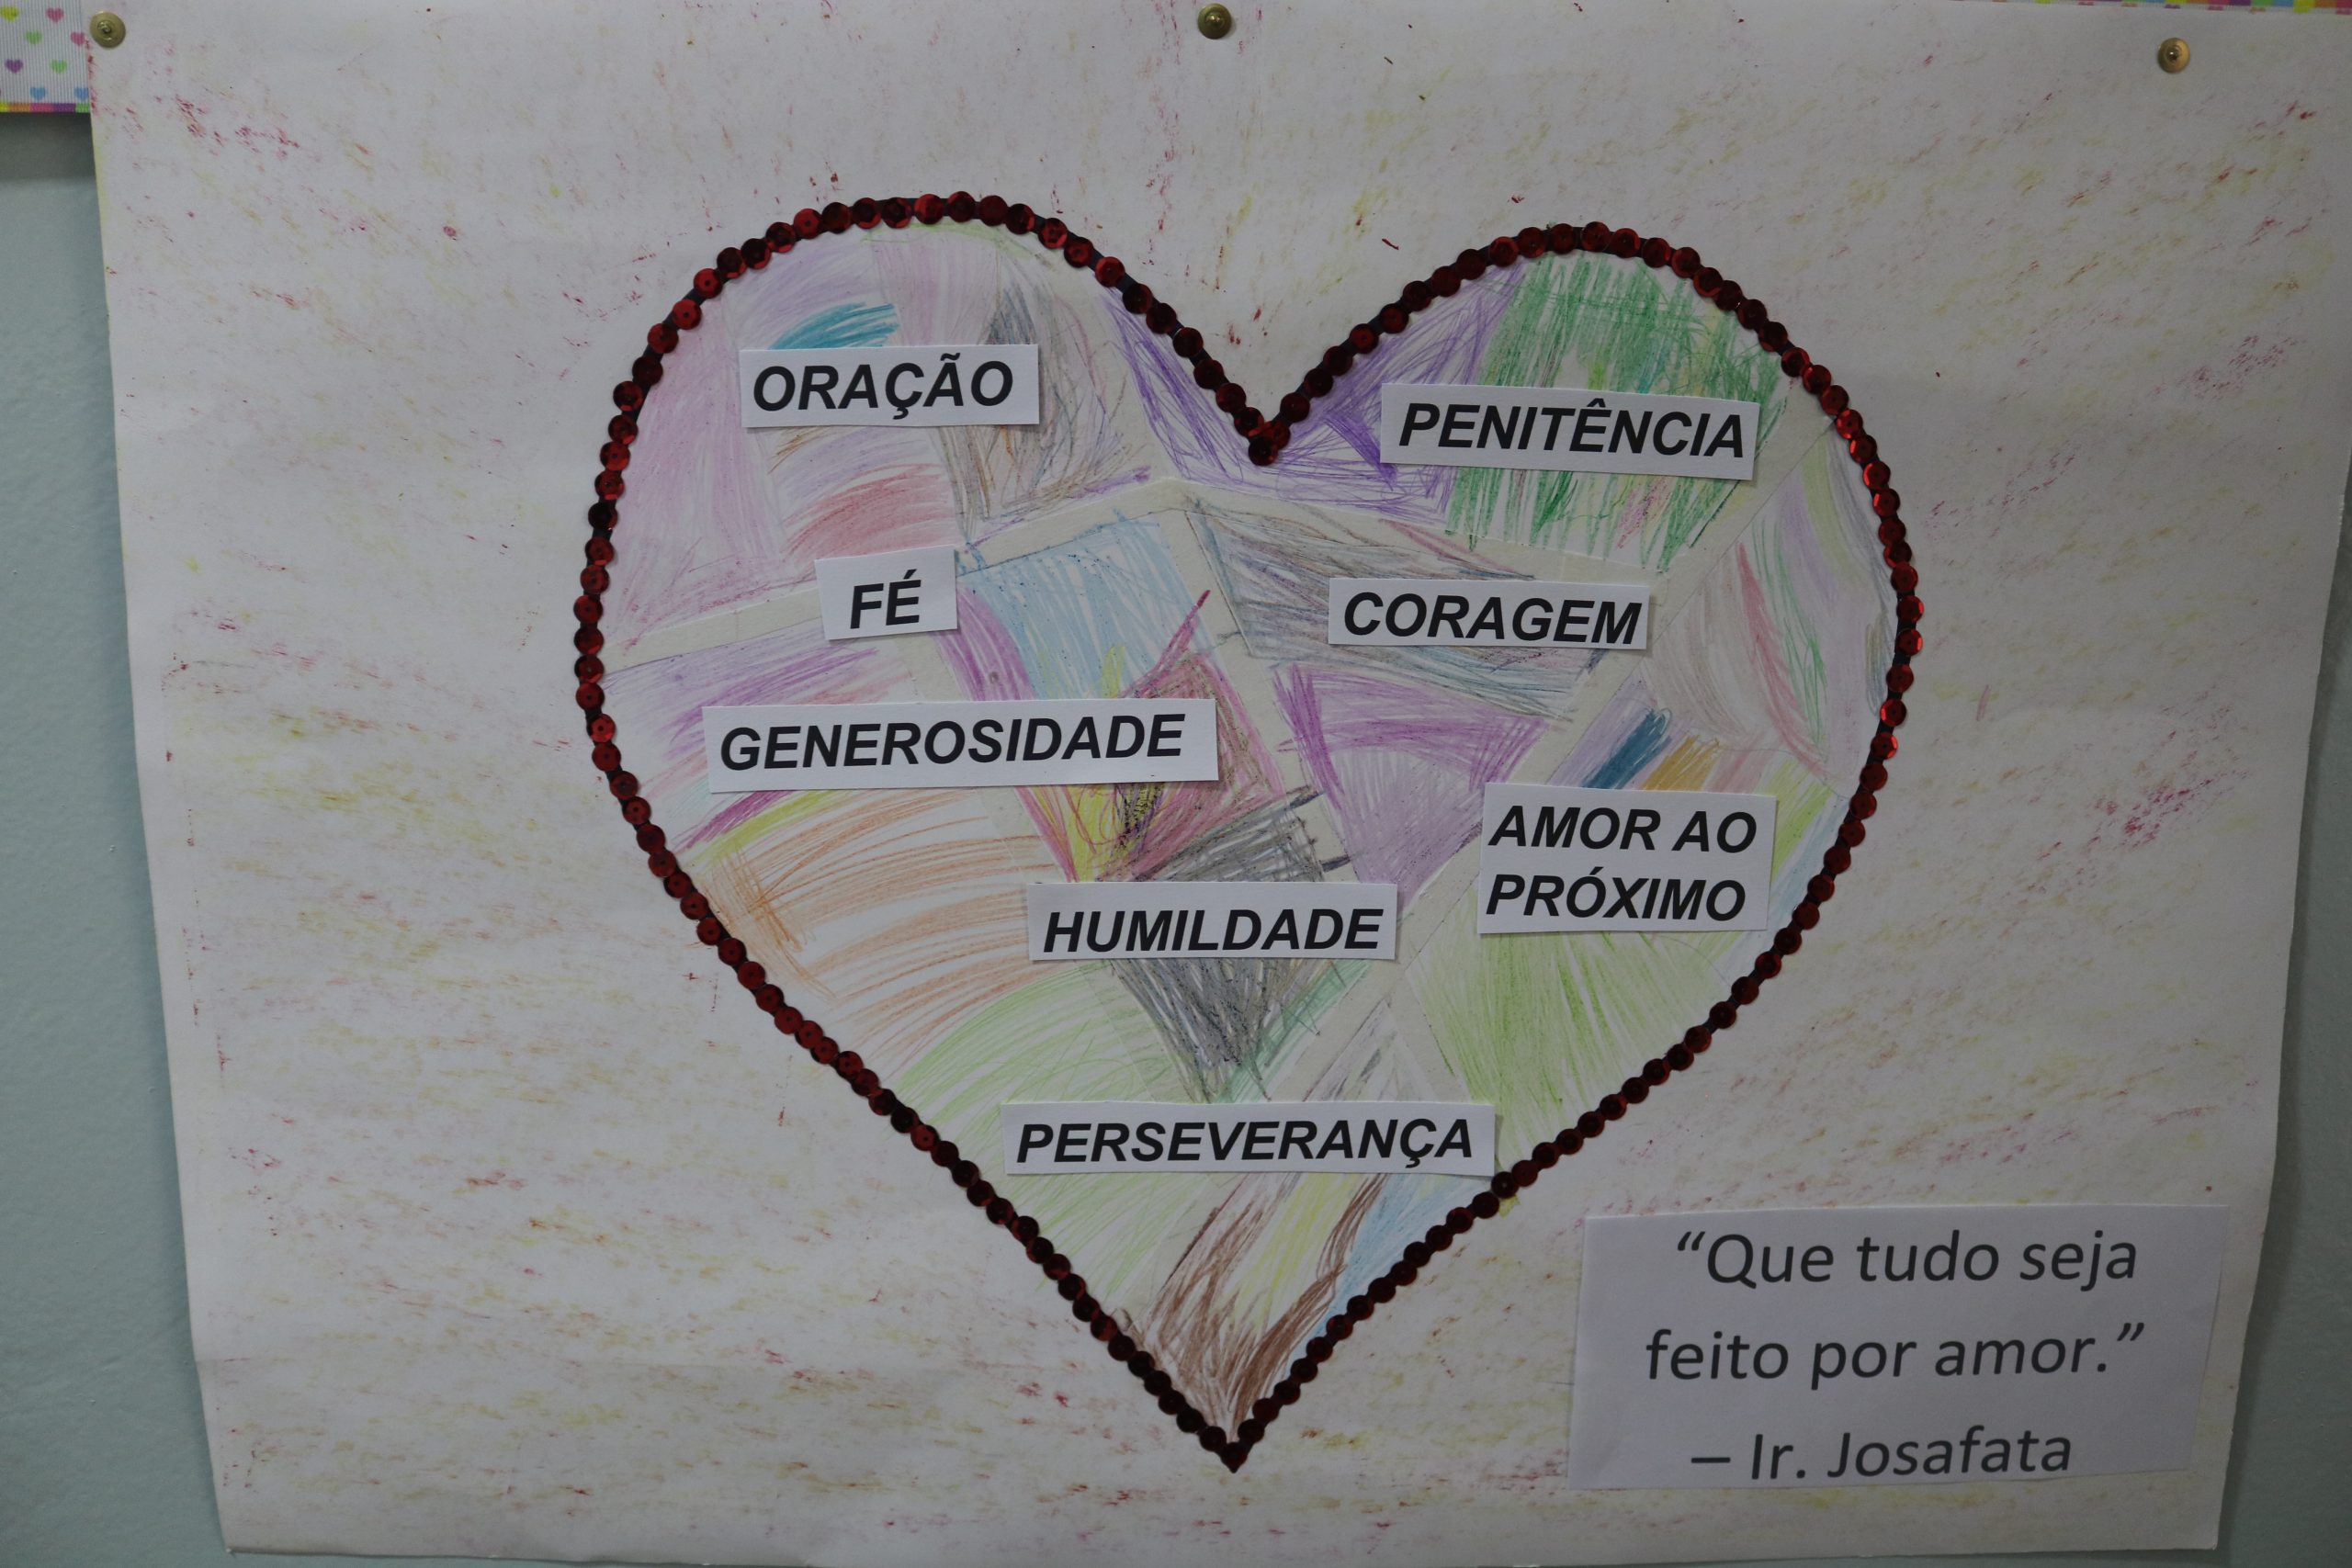 ORAÇÃO
PENITÊNCIA
FÉ
CORAGEM
GENEROSIDADE
AMOR AO
PRÓXIMO
HUMILDADE
PERSEVERANÇA
“Que tudo seja
feito por amor.”
– Ir. Josafata